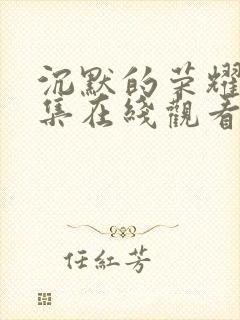 沉默的荣耀
集在綫觀看
任紅芳